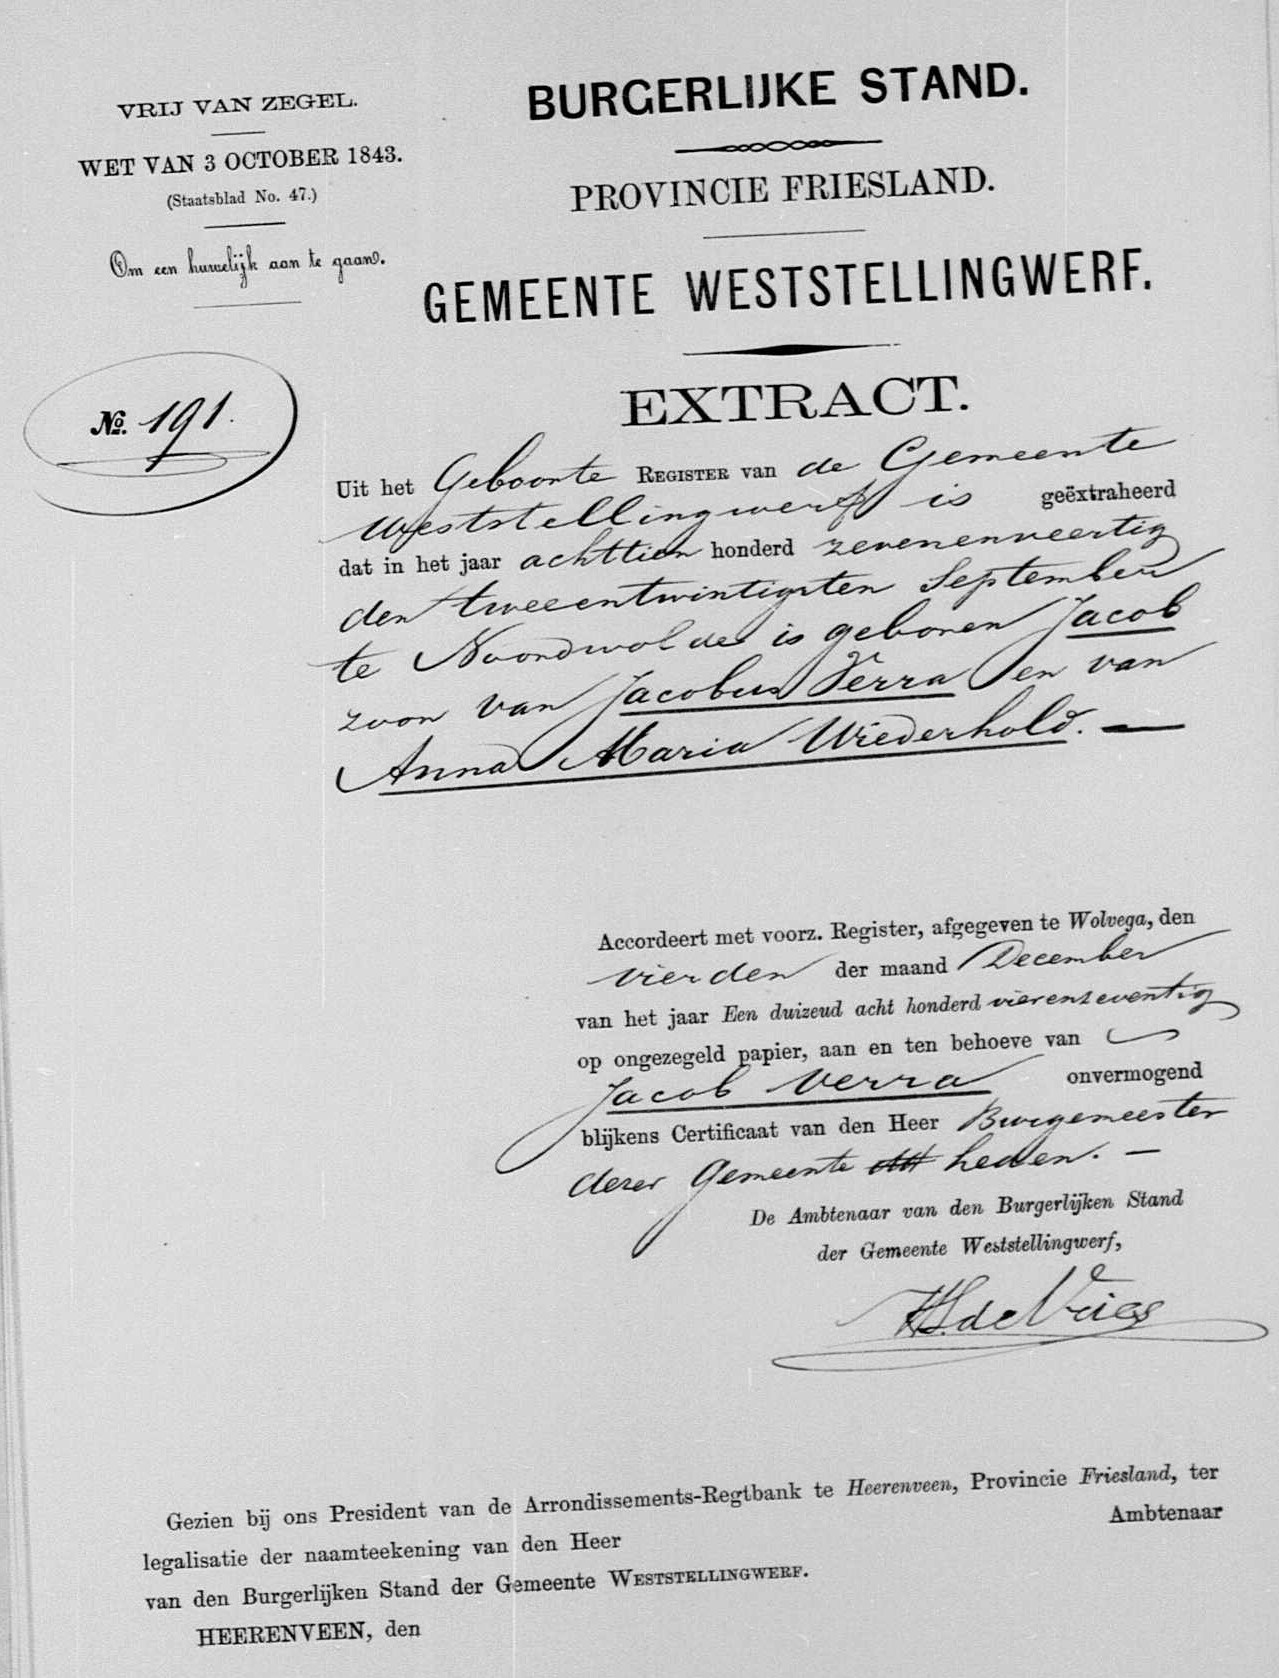 VRIJ VAN ZEGEL.
WET VAN 3 OCTOBER 1843.
(Staatsblad No. 47.)
Om een huwelijk aan te gaan.
No. 191.
BURGERLIJKE STAND.
PROVINCIE FRIESLAND.
GEMEENTE WESTSTELLINGWERF.
EXTRACT.
Uit het Geboorte REGISTER van de Gemeente
Weststellingwerf is geëxtraheerd
dat in het jaar achttien honderd zevenenveertig
den tweeentwintigsten September
te Noordwolde is geboren Jacob
zoon van Jacobus Verra en van
Anna Maria Wiederhold. —
Accordeert met voorz. Register, afgegeven te Wolvega, den
vierden der maand December
van het jaar Een duizend acht honderd vierenzeventig
op ongezegeld papier, aan en ten behoeve van
Jacob Verra onvermogend
blijkens Certificaat van den Heer Burgemeester
dezer Gemeente heden. —
De Ambtenaar van den Burgerlijken Stand
der Gemeente Weststellingwerf,
de Vries
Gezien bij ons President van de Arrondissements-Regtbank te Heerenveen, Provincie Friesland, ter
legalisatie der naamteekening van den Heer Ambtenaar
van den Burgerlijken Stand der Gemeente WESTSTELLINGWERF.
HEERENVEEN, den